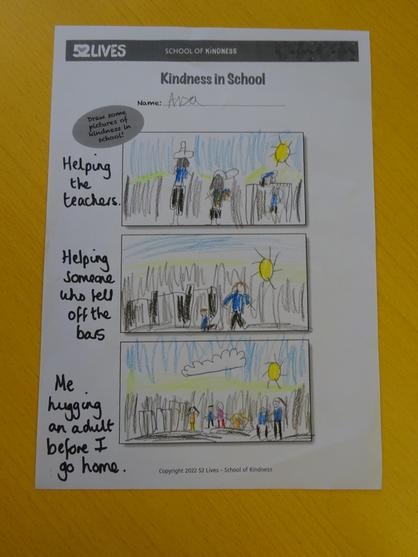 52 LIVES
SCHOOL OF KINDNESS
Kindness in School
Name:
Draw some
pictures of
kindness in
school!
Helping
the
teachers.
Helping
someone
who fell
off the
bars
Me
hugging
an adult
before I
go home.
Copyright 2022 52 Lives - School of Kindness